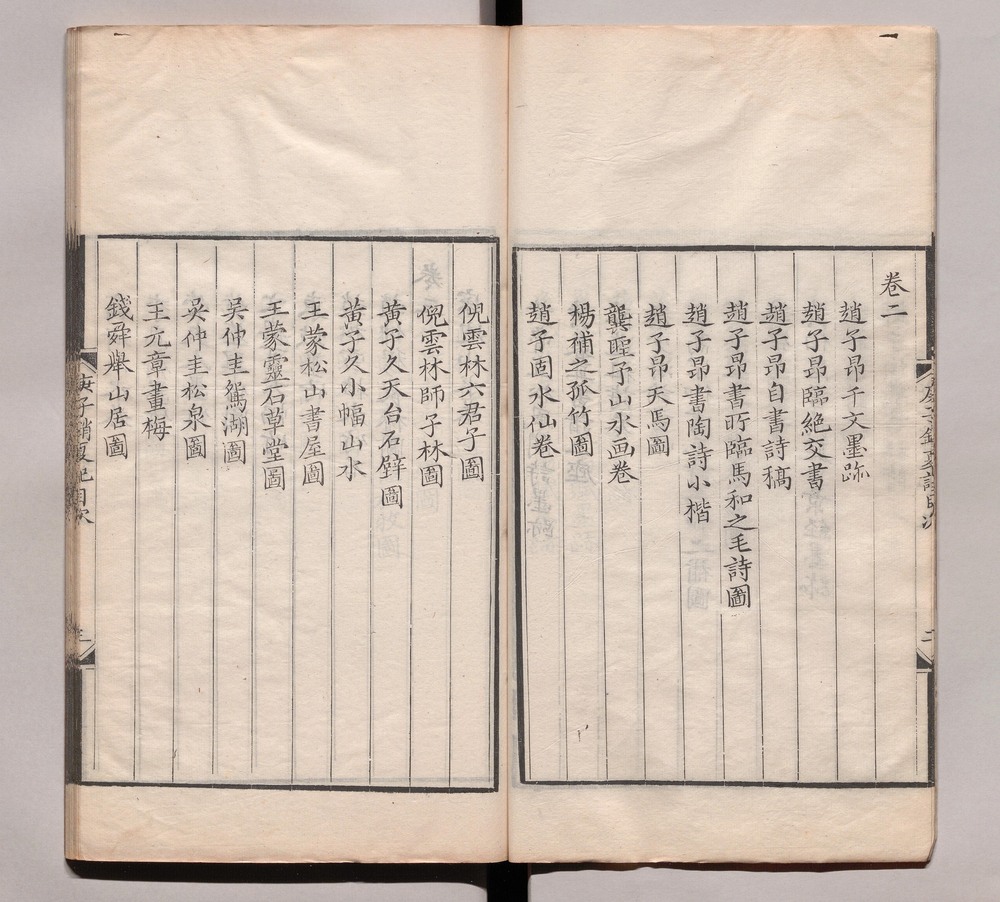 卷二
趙子昻千文墨跡
趙子昻臨絶交書
趙子昻自書詩稿
趙子昻書所臨馬和之毛詩圖
趙子昻書陶詩小楷
趙子昻天馬圖
龔聖予山水画卷
楊補之孤竹圖
趙子固水仙卷
倪雲林六君子圖
倪雲林師子林圖
黃子久天台石壁圖
黃子久小幅山水
王蒙松山書屋圖
王蒙靈石草堂圖
吳仲圭鴛湖圖
吳仲圭松泉圖
王元章畫梅
錢舜舉山居圖
庚子銷夏記目次